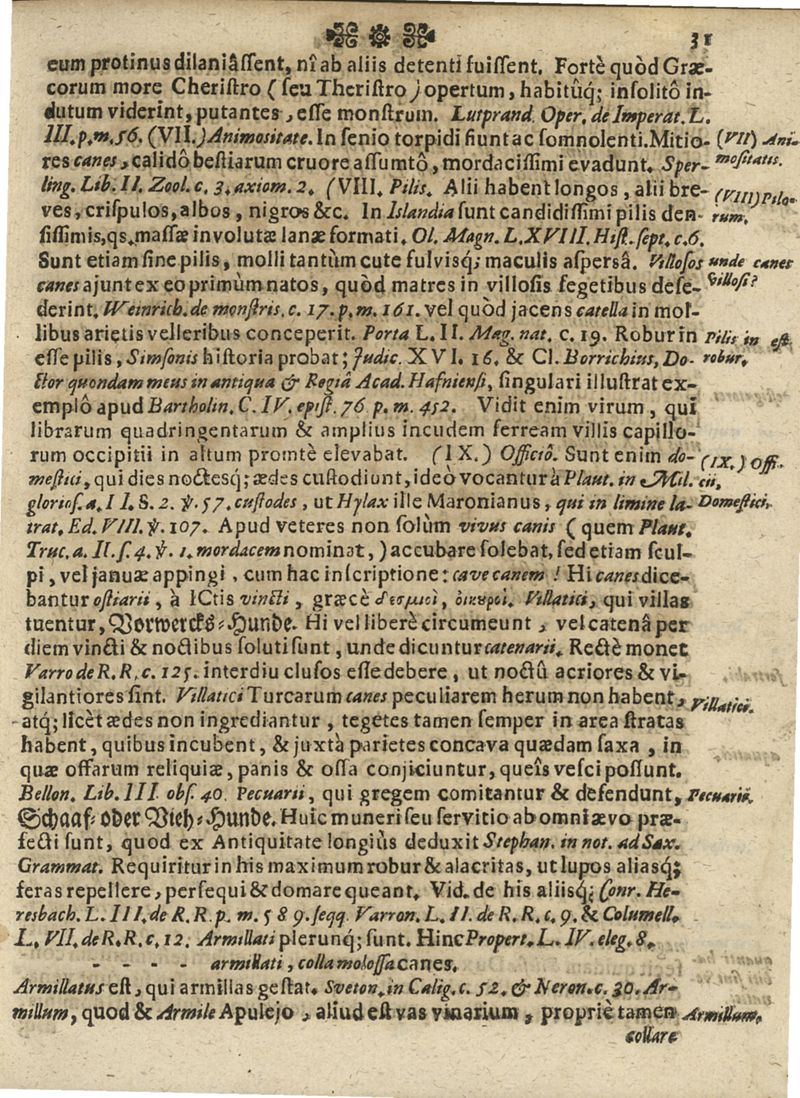 31
eum protinus dilaniâſſent, nî ab aliis detenti fuiſſent. Fortè quòd Græ-
corum more Cheriſtro (ſeu Theriſtro) opertum, habitûq; inſolitô in-
dutum viderint, putantes, eſſe monſtrum. Lutprand. Oper. de Imperat. L.
III. p. m. 56. (VII.) Animoſitate. In ſenio torpidi fiunt ac ſomnolenti. Mitio-
(VII) Ani-
res canes, calidô beſtiarum cruore aſſumtô, mordaciſſimi evadunt. Sper-
moſitatis.
ling. Lib. II. Zool. c. 3. axiom. 2. (VIII. Pilis. Alii habent longos, alii bre-
(VIII) Pilo-
ves, criſpulos, albos, nigros &c. In Islandia ſunt candidiſſimi pilis den-
rum.
ſiſſimis, qs. maſſæ involutæ lanæ formati. Ol. Magn. L. XVIII. Hiſt. ſept. c. 6.
Sunt etiam ſine pilis, molli tantùm cute fulvisq; maculis aſperſâ. Villoſos
unde canes
canes ajunt ex eo primùm natos, quòd matres in villoſis ſegetibus deſe-
villoſi?
derint. Weinrich. de monſtris. c. 17. p. m. 161. vel quòd jacens catella in mol-
libus arietis velleribus conceperit. Porta L. II. Mag. nat. c. 19. Robur in
Pilis in eſt
eſſe pilis, Simſonis hiſtoria probat; Judic. XVI. 16. & Cl. Borrichius, Do-
robur.
ctor quondam meus in antiqua & Regiâ Acad. Hafnienſi, ſingulari illuſtrat ex-
emplô apud Bartholin. C. IV. epiſt. 76 p. m. 452. Vidit enim virum, qui
librarum quadringentarum & amplius incudem ferream villis capillo-
rum occipitii in altum promtè elevabat. (IX.) Officiô. Sunt enim do-
(IX.) Offi-
meſtici, qui dies noctesq; ædes cuſtodiunt, ideò vocantur à Plaut. in Mil.
cii,
glorioſ. a. II. S. 2. ℣. 57. cuſtodes, ut Hylax ille Maronianus, qui in limine la-
Domeſtici,
trat, Ed. VIII. ℣. 107. Apud veteres non ſolùm vivus canis (quem Plaut.
Truc. a. II. ſ. 4. ℣. 1. mordacem nominat,) accubare ſolebat, ſed etiam ſcul-
pi, vel januæ appingi, cum hac inſcriptione: cave canem! Hi canes dice-
bantur oſtiarii, à ICtis vincti, græcè δεσμιοὶ, οἰκυροί. Villatici, qui villas
tuentur, Vorwercks-Hunde. Hi vel liberè circumeunt, vel catenâ per
diem vincti & noctibus ſoluti ſunt, unde dicuntur catenarii. Rectè monet
Varro de R. R. c. 125. interdiu cluſos eſſe debere, ut noctû acriores & vi-
gilantiores ſint. Villatici Turcarum canes peculiarem herum non habent,
Villatici.
atq; licèt ædes non ingrediantur, tegetes tamen ſemper in area ſtratas
habent, quibus incubent, & juxtà parietes concava quædam ſaxa, in
quæ offarum reliquiæ, panis & oſſa conjiciuntur, queîs veſci poſſunt.
Bellon. Lib. III obſ. 40. Pecuarii, qui gregem comitantur & defendunt,
Pecuarii.
Schaaf- oder Vieh-Hunde. Huic muneri ſeu ſervitio ab omni ævo præ-
fecti ſunt, quod ex Antiquitate longiùs deduxit Stephan. in not. ad Sax.
Grammat. Requiritur in his maximum robur & alacritas, ut lupos aliasq;
feras repellere, perſequi & domare queant. Vid. de his aliisq; Conr. He-
resbach. L. III. de R. R. p. m. 589. ſeqq. Varron. L. II. de R. R. c. 9. & Columell.
L. VII. de R. R. c. 12. Armillati plerunq; ſunt. Hinc Propert. L. IV. eleg. 8.
- - - - armillati, colla moloſſa canes.
Armillatus eſt, qui armillas geſtat. Sveton. in Calig. c. 52. & Neron. c. 30. Ar-
millum, quod & Armile Apulejo, aliud eſt vas vinarium, propriè tamen
Armillum.
collare